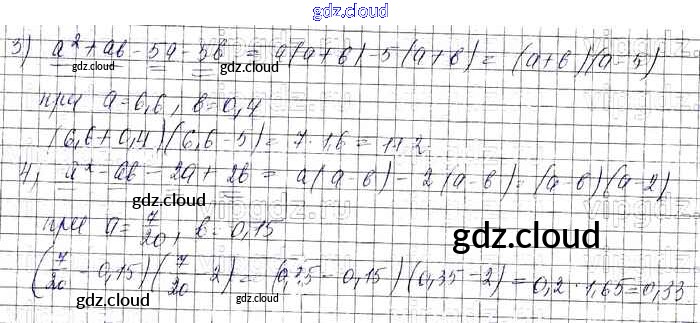 gdz.cloud
3) a² + ab - 5a - 5b = a(a+b) - 5(a+b) = (a+b)(a-5)
gdz.cloud gdz.cloud
при a = 6,6, b = 0,4
gdz.cloud
(6,6+0,4)(6,6-5) = 7 · 1,6 = 11,2
4) a² - ab - 2a + 2b = a(a-b) - 2(a-b) = (a-b)(a-2)
gdz.cloud
при a = 7/20, b = 0,15
gdz.cloud
(7/20 - 0,15)(7/20 - 2) = (0,35 - 0,15)(0,35 - 2) = 0,2 · 1,65 = 0,33
gdz.cloud gdz.cloud